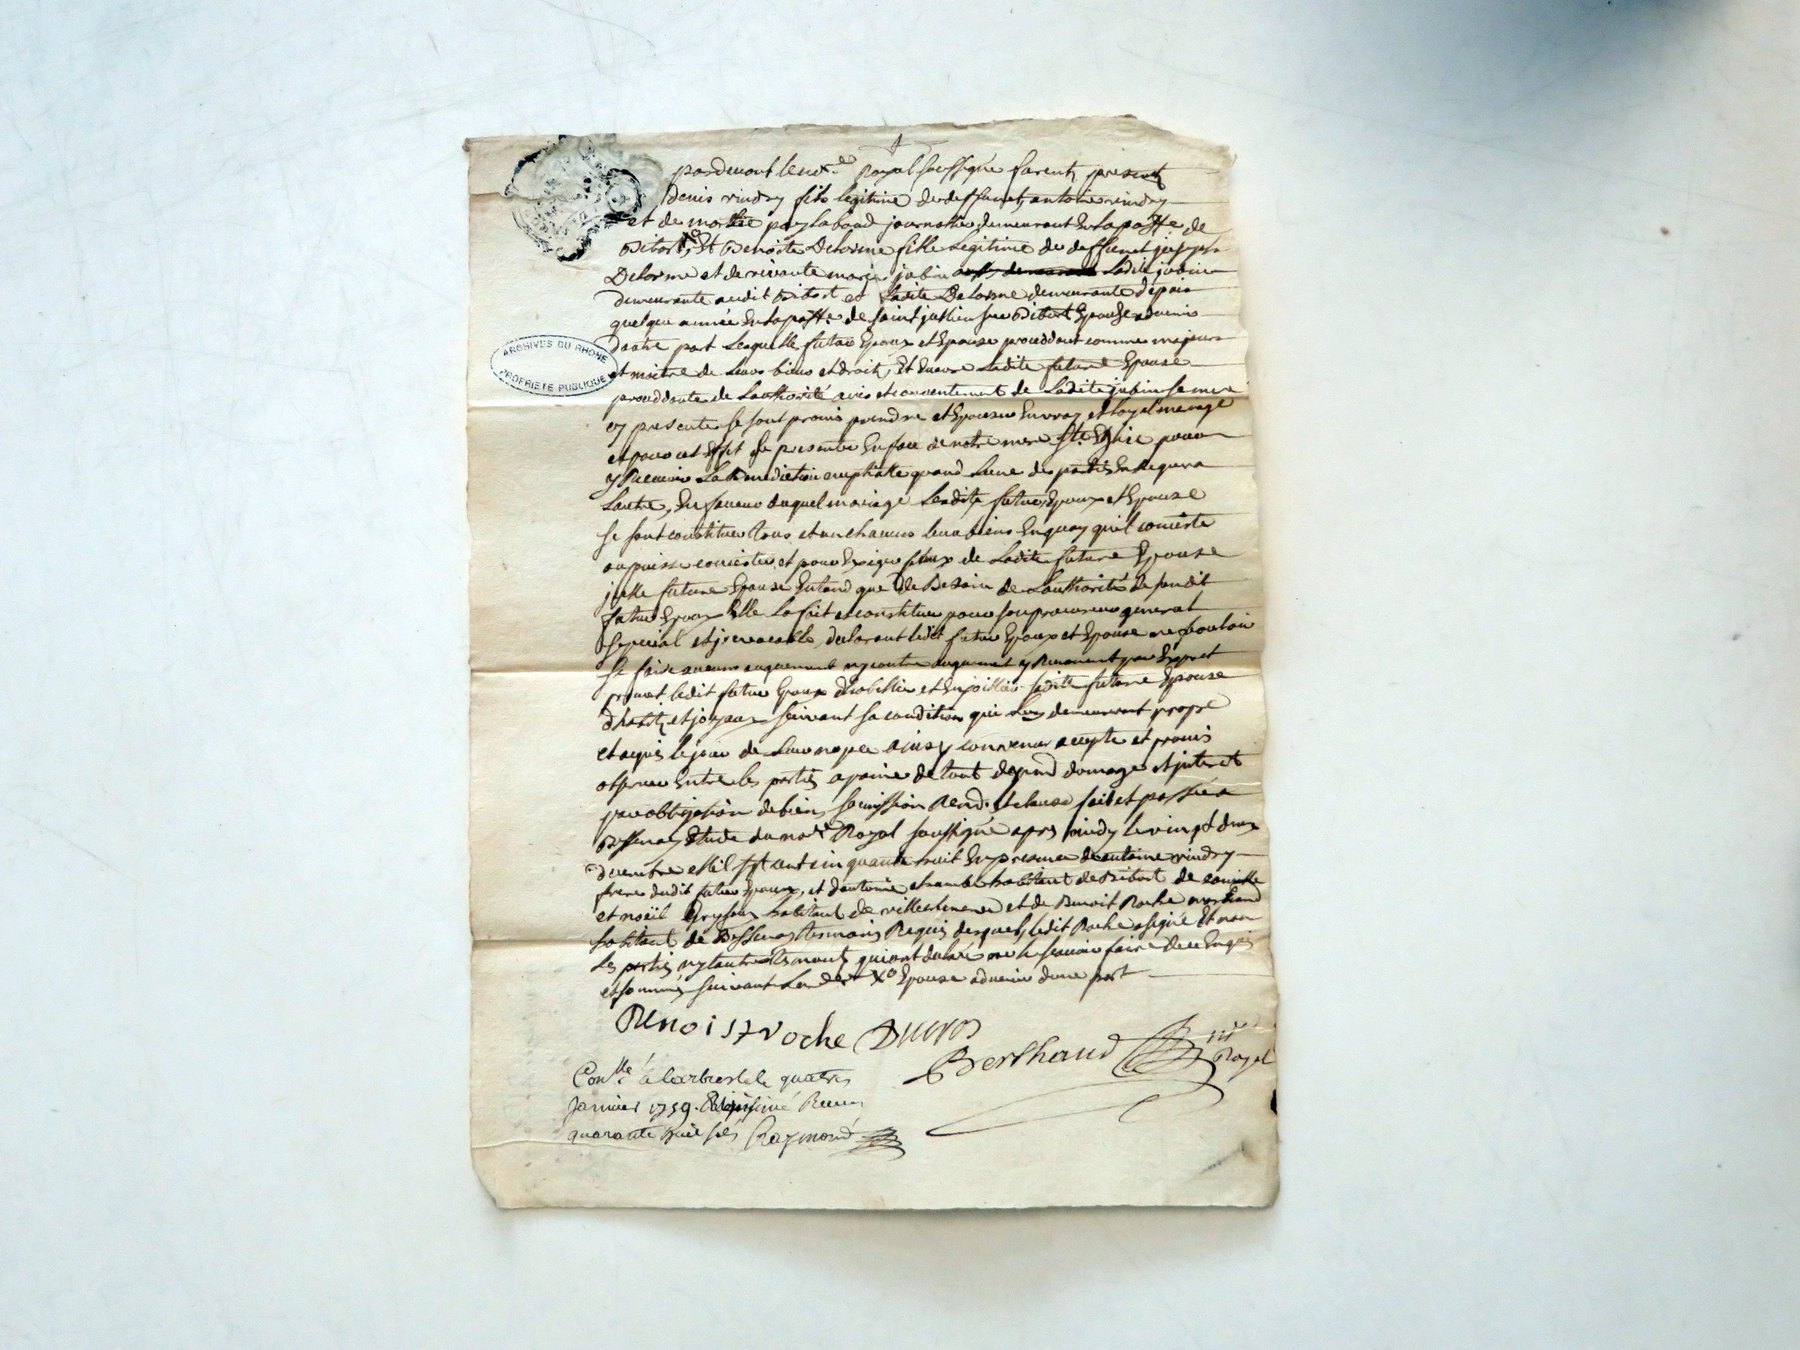 pardevant le not.re Royal soussigné furent presents
denis vindry fils legitime de deffunct antoine vindry
et de marthe journallier demeurant en la paroisse de
Bibost, Et Benoite Delorme fille Legitime de deffunct
Delorme et de vivante marie jubin Ladite jubin
demeurante audit Bibost et Ladite Delorme demeurante depuis
quelque année En la parsse de saint jullien sur Bibost Epouse advenir
dautre part Lesquelle futur Epoux et Epouse proceddant comme majeurs
et maitre de Leurs biens et droits, Et Encore Ladite future Epouse
proceddante de Lauthorité avis et consentement de Ladite jubin sa mere
cy presente se sont promis prendre et Epouser En vray et loyal mariage
et pour cet effet se presenter En face de notre mere Ste Eglise pour
y Recevoir La benediction nuptialle quand Lune des parties En Requera
Lautre, En faveur duquel mariage Lesdits futurs Epoux et Epouse
se sont constitues tous et un chacuns leurs biens En quoy qu'il conciste
ou puisse concister et pour Exiger ceux de Ladite future Epouse
icelle future Epouse Entand que de Besoin de Lauthorité de sondit
futur Epoux Elle La fait et constitue pour son procureur general
special et irrevocable, declarant ledit futur Epoux et Epouse ne vouloir
se faire aucuns augement ny contre augement y Renoncent par Exprest
promet ledit futur Epoux d'habiller et Enjoiller ladite future Epouse
d'habits et joyaux suivant sa condition qui Luy demeureront propre
et acquis le jour de Leur nopce ainsy convenu accepté et promis
observer Entre les parties a paine de tout depend domage et interet
par obligation de biens soumission Renon. et clause fait et passé a
Bessenay Etude du nore Royal soussigné apres midy le vingt deux
decembre Mil sept cent cinquante huit En presence de antoine vindry
frere dudit futur Epoux, et d'antoine habitant de Bibost
et noëil habitant de villecheneve et de Benoit Roche marchand
habitant de Bessenay temoins Requis desquels ledit Roche a signé Et non
Les parties ny lautre temoins qui ont declaré ne le scavoir faire de ce Enquis
et sommés suivant Lordce X Epouse advenir dune part
Benoist roche Duivon
Berthaud nre Royal
Conllé à Larbresle le quatre
Janvier 1759. Receu
quarante huit sols Raymond
ARCHIVES DU RHONE
PROPRIETE PUBLIQUE